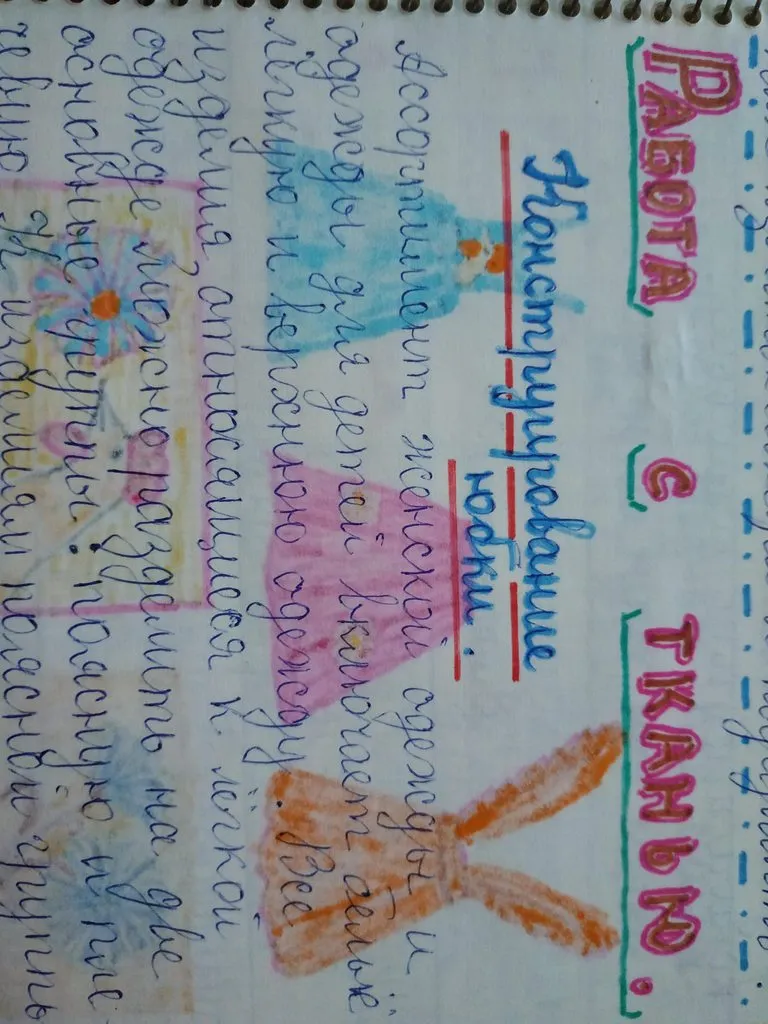 РАБОТА С ТКАНЬЮ.
Конструирование
юбки.
Ассортимент женской одежды и
одежды для детей включает бельё
лёгкую и верхнюю одежду. Все
изделия относящиеся к лёгкой
одежде можно разделить на две
основные группы: поясную и пле-
чевую. К изделиям поясной группы